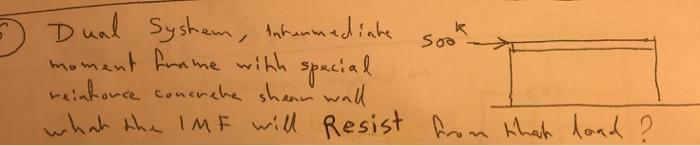 5) Dual System, Intermediate 500 k
moment frame with special
reinforce concrete shear wall
what the IMF will Resist from that load ?